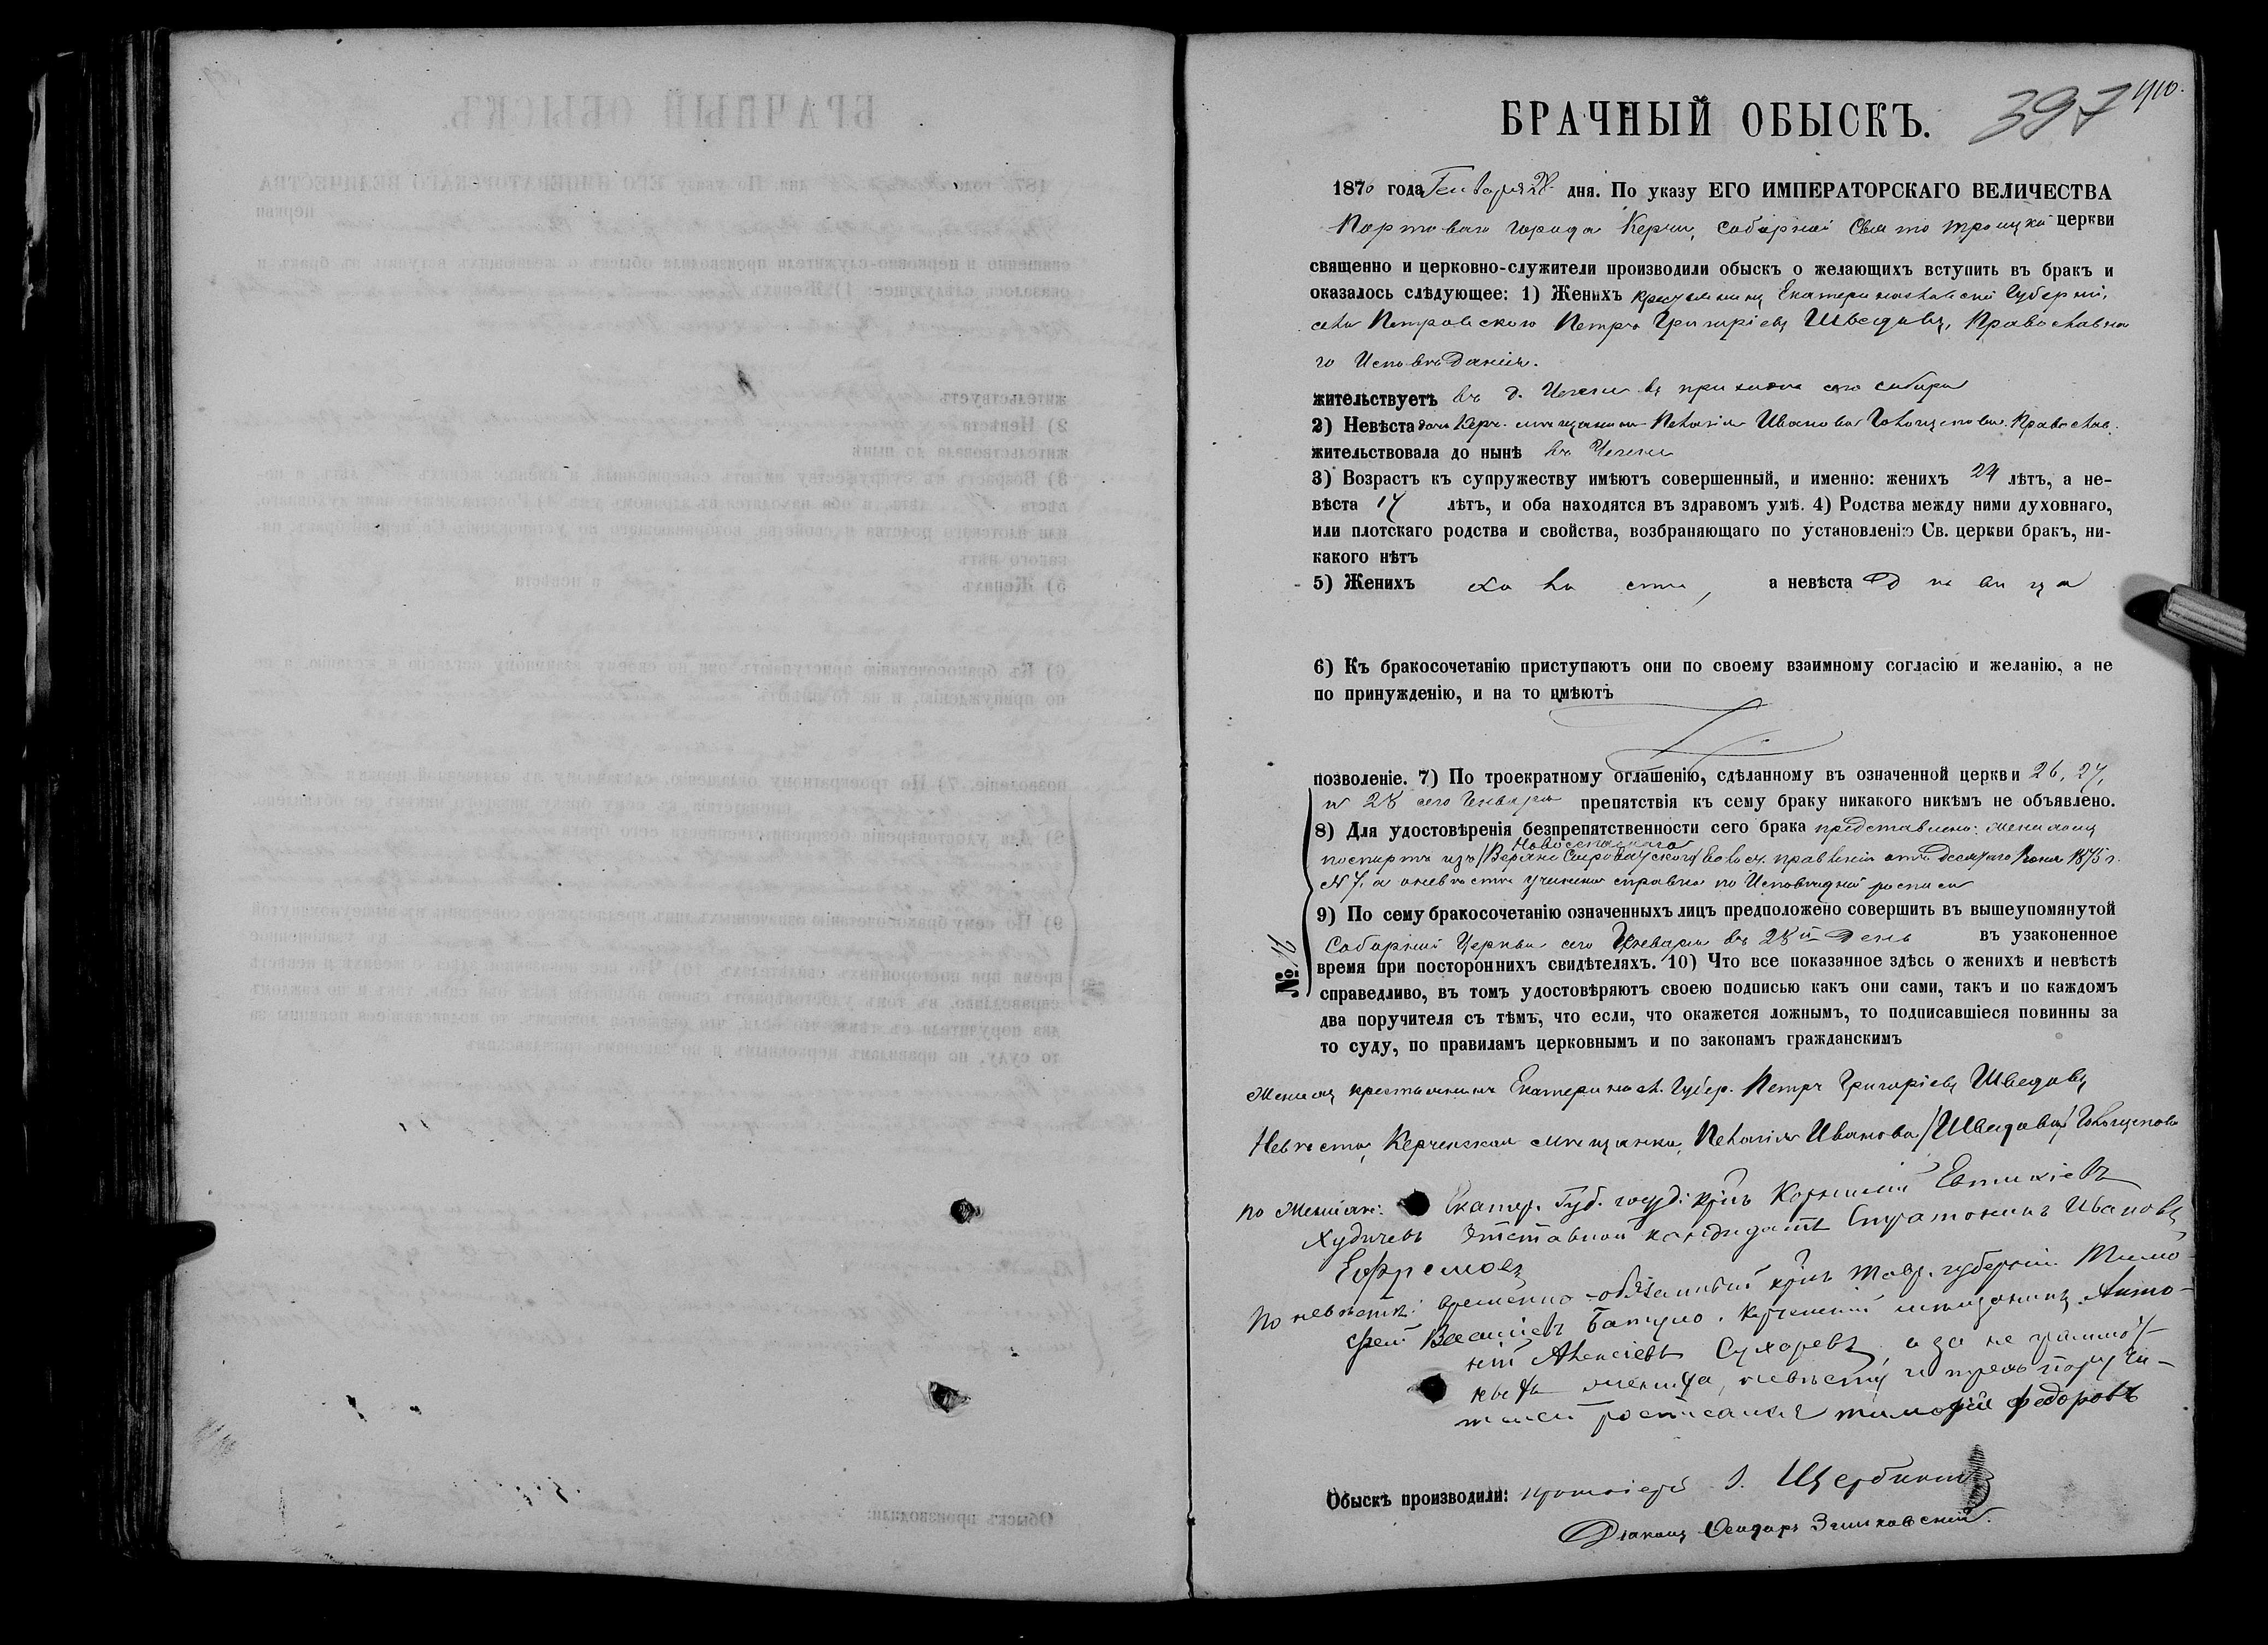 БРАЧНЫЙ ОБЫСКЪ.
397
410.
1876 года Генваря 28 дня. По указу ЕГО ИМПЕРАТОРСКАГО ВЕЛИЧЕСТВА
Портоваго города Керчи, соборной Свято Троицкой церкви
священно и церковно-служители производили обыскъ о желающихъ вступить въ бракъ и
оказалось слѣдующее: 1) Женихъ крестьянинъ Екатеринославской Губерніи,
села Петровского Петръ Григоріевъ Шведовъ, Православна
го Исповѣданія.
жительствуетъ въ д. въ приходѣ сего собора
2) Невѣста дочь Керч. мѣщанина Пелагія Иванова Православ.
жительствовала до нынѣ въ
3) Возрастъ къ супружеству имѣютъ совершенный, и именно: женихъ 24 лѣтъ, а не-
вѣста 17 лѣтъ, и оба находятся въ здравомъ умѣ. 4) Родства между ними духовнаго,
или плотскаго родства и свойства, возбраняющаго по установленію Св. церкви бракъ, ни-
какого нѣтъ
5) Женихъ холостъ, а невѣста дѣвица
6) Къ бракосочетанію приступаютъ они по своему взаимному согласію и желанію, а не
по принужденію, и на то имѣютъ
позволеніе. 7) По троекратному оглашенію, сдѣланному въ означенной церкви 26, 27,
и 28 сего Генваря препятствія къ сему браку никакого никѣмъ не объявлено.
8) Для удостовѣренія безпрепятственности сего брака представлено: женихомъ
Новоспаскаго
паспортъ изъ волос. правленія отъ десятаго 1875 г.
№ 7, а о невѣстѣ учинена справка по Исповѣдной росписи
9) По сему бракосочетанію означенныхъ лицъ предположено совершить въ вышеупомянутой
Соборной Церкви сего Генваря въ 28й день въ узаконенное
время при постороннихъ свидѣтеляхъ. 10) Что все показанное здѣсь о женихѣ и невѣстѣ
справедливо, въ томъ удостовѣряютъ своею подписью какъ они сами, такъ и по каждомъ
два поручителя съ тѣмъ, что если, что окажется ложнымъ, то подписавшіеся повинны за
то суду, по правиламъ церковнымъ и по законамъ гражданскимъ
№ 16
Женихъ крестьянинъ Екатериносл. Губер. Петръ Григоріевъ Шведовъ
Невѣста, Керченская мѣщанка, Пелагія Иванова /Шведова/
по женихѣ: Екатер. Губ. крнъ Корнилій Евтихіевъ
Худичевъ отставной кандидатъ Стратоникъ Ивановъ
Ефремовъ
По невѣстѣ: временно-обязанный крнъ Тавр. губерніи Тимо-
фей Васильевъ Керченскій мѣщанинъ Анто-
ній Алексіевъ Сухаревъ, а за не грамот-
ныхъ жениха, невѣсту и трехъ поручи-
телей росписался тимофей федоровъ
Обыскъ производили: протоіерей І. Щербина
Діаконъ